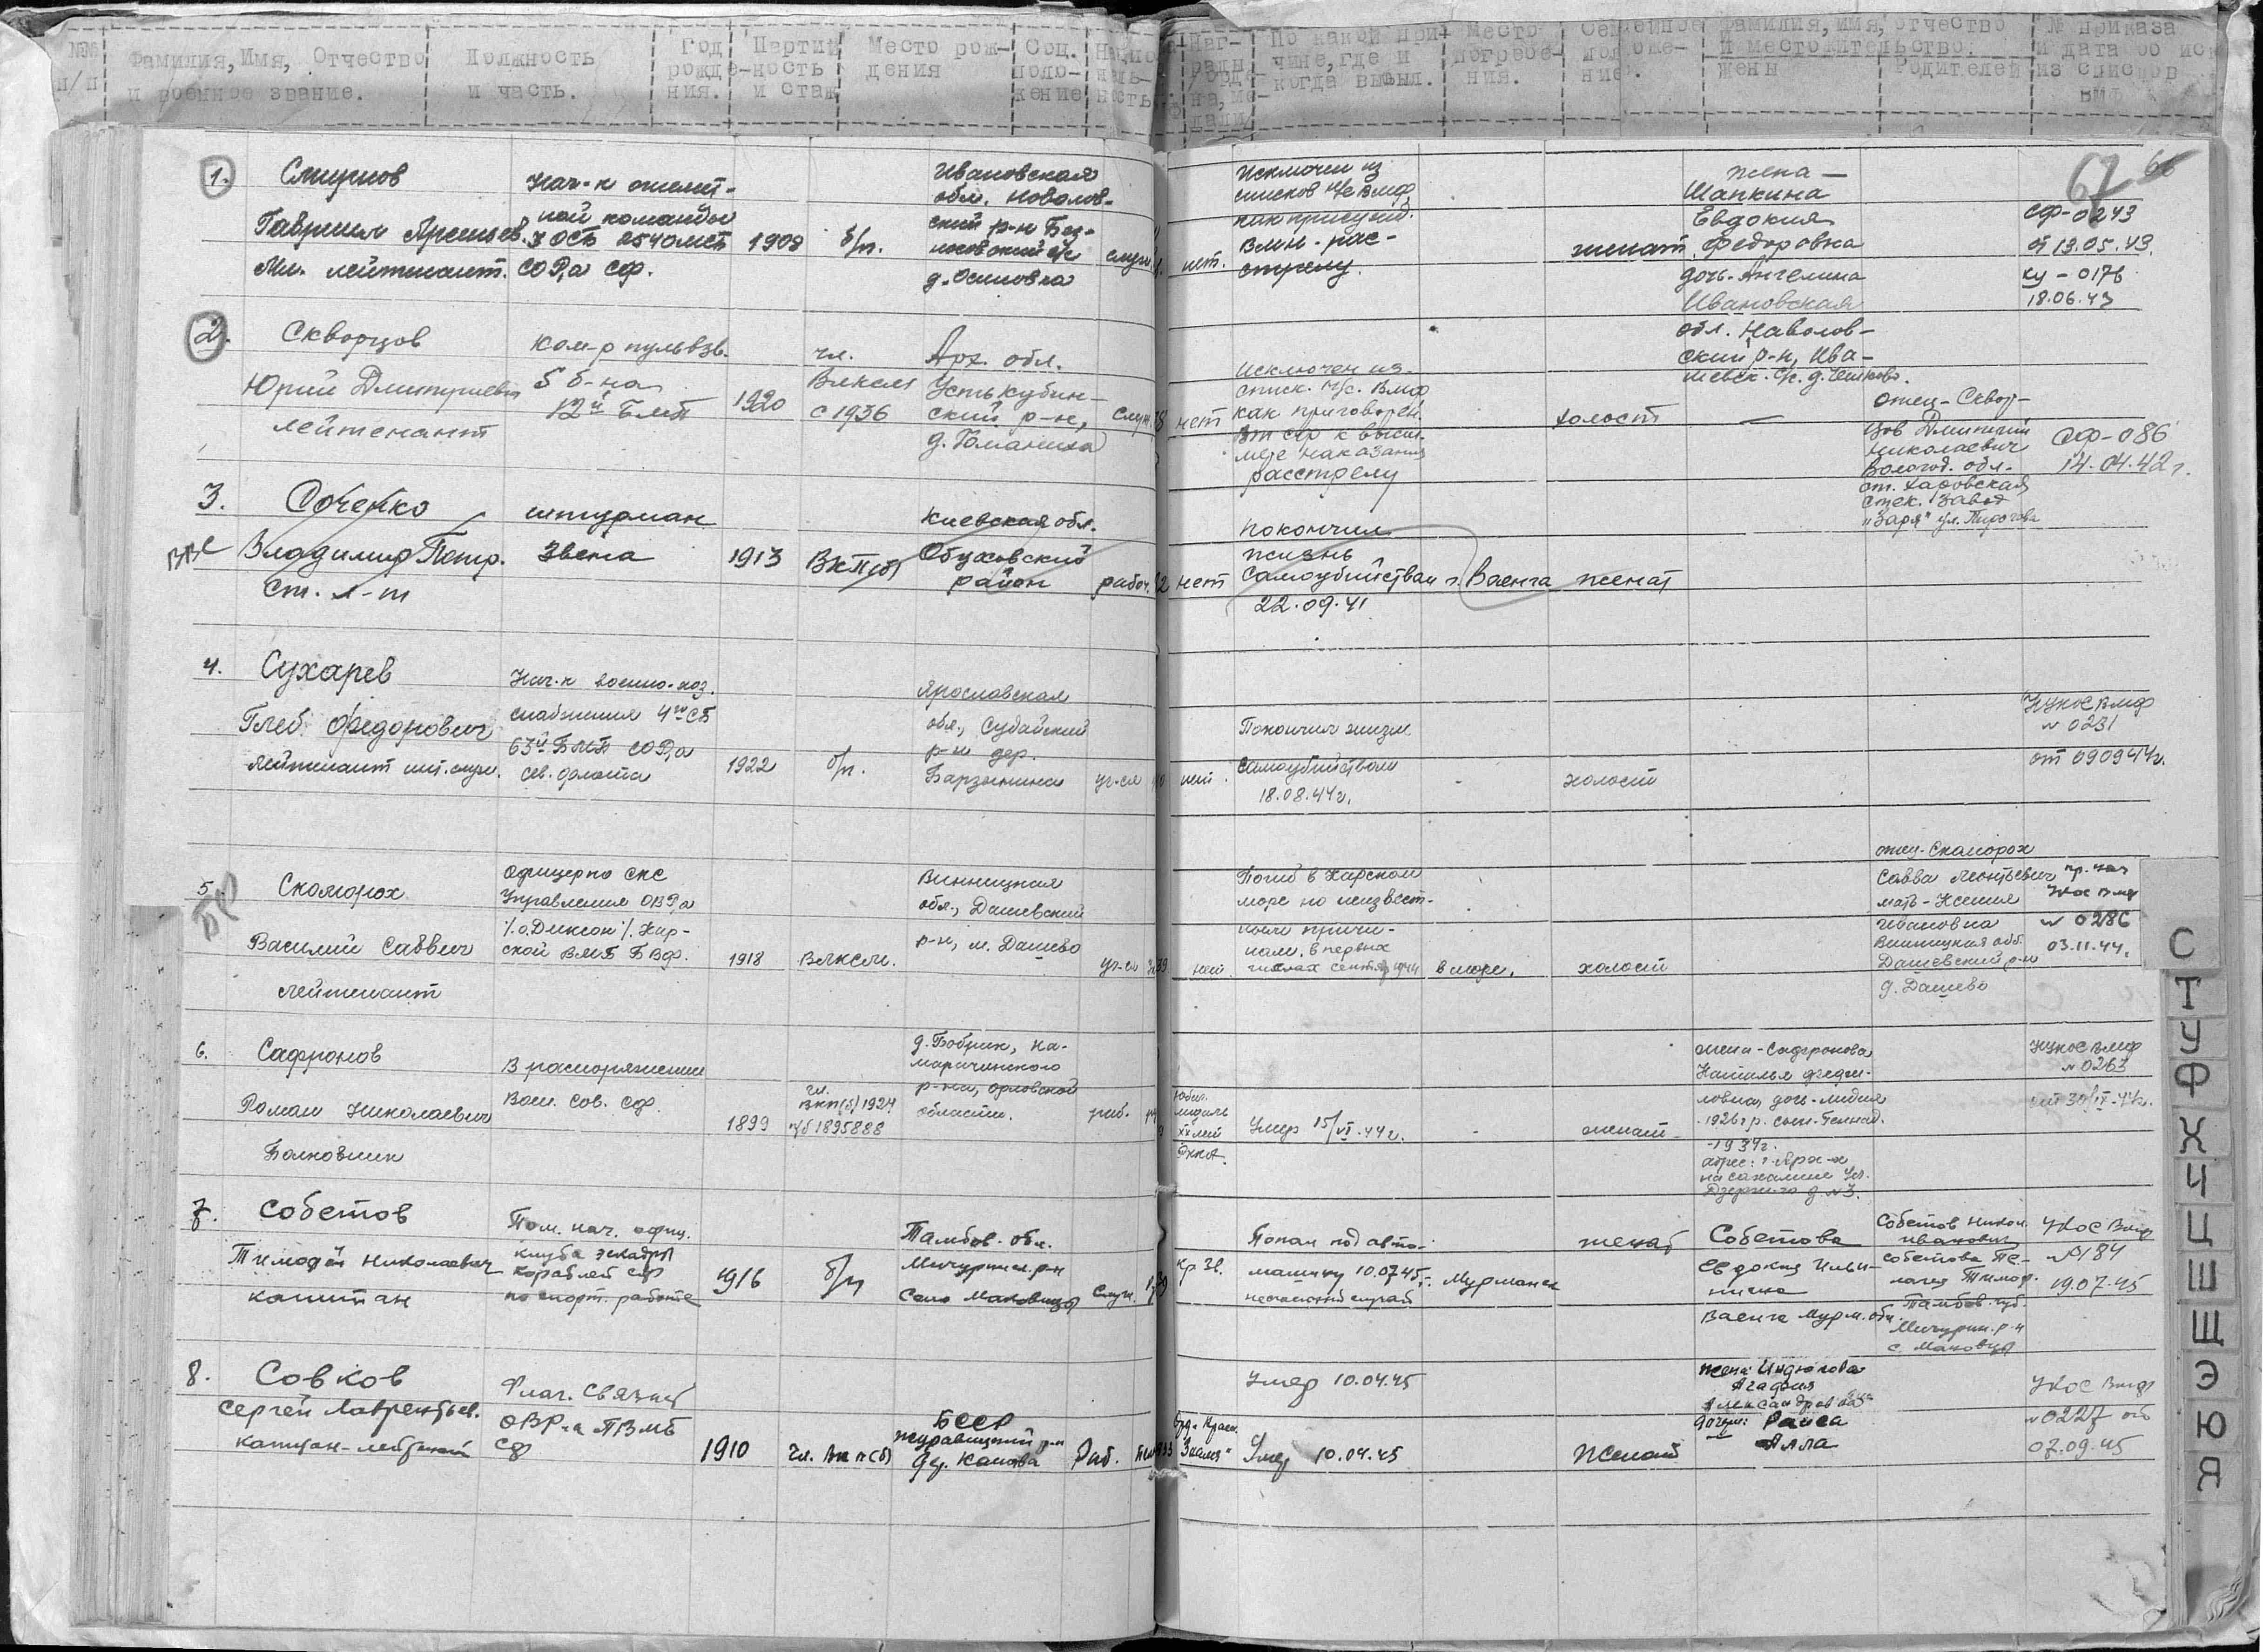 №№ п/п
Фамилия, Имя, Отчество и военное звание.
Должность и часть.
Год рождения.
Партийность и стаж
Место рождения
Соц. положение
По какой причине, где и когда выбыл.
Место погребения.
Семейное положение.
Фамилия, имя, отчество и местожительство.
Жены
Родителей
№ приказа и дата об из списков ВМФ
67
1.
Смирнов
Гавриил Арсеньев.
Мл. лейтенант.
Нач-к
ной команды
СОРа СФ.
1908
б/п.
Ивановская
обл.
д. Осиновка
служ.
нет.
Исключен из
списков н/с ВМФ
как присужд.
в ВМН - рас-
стрелу.
женат.
жена -
Шапкина
Евдокия
Федоровна
дочь. Ангелина
Ивановская
обл. Наволов-
ский р-н, Ива-
СФ-0243
от 13.05.43.
КУ-0176
18.06.43
2.
Скворцов
Юрий Дмитриевич
лейтенант
Ком-р пульвзв.
5 б-на
12й БМП
1920
чл.
ВЛКСМ
с 1936
Арх. обл.
Устькубин-
ский р-н,
д. Романиха
служ.
нет
Исключен из
списк. н/с. ВМФ
как приговорен.
ВТ СФ к высш.
мере наказания
расстрелу
холост
—
отец - Сквор-
цов Дмитрий
Николаевич
Вологод. обл.
ст. Харовская
стек. завод
"Заря" ул. Пирогова
СФ-086
14.04.42г.
3.
ВВС
Соченко
Владимир Петр.
Ст. л-т
штурман
звена
1913
ВКП(б)
Киевская обл.
Обуховский
район
рабоч.
нет
Покончил
жизнь
самоубийством
22.09.41
г. Ваенга
женат
4.
Сухарев
Глеб Федорович
Лейтенант инт. служ.
Нач-к военно-хоз.
снабжения 4го СБ
63й БМП СОРа
сев. флота
1922
б/п.
Ярославская
обл., Судайский
р-н дер.
уч-ся
нет.
Покончил жизнь
самоубийством
18.08.44г.
-
холост
НУКОС ВМФ
№ 0231
от 090944г.
5.
БФ
Скоморох
Василий Саввич
Лейтенант
Офицер по СКС
Управления ОВРа
/о. Диксон/. Кар-
ской ВМБ БВФ.
1918
ВЛКСМ.
Винницкая
обл., Дашевский
р-н, м. Дашево
уч-ся
нет.
Погиб в Карском
море по неизвест-
ным причи-
нам. в первых
числах сентяб 1944
в море.
холост
отец - Скоморох
Савва Леонтьевич
мать - Ксения
Ивановна
Винницкая обл.
Дашевский р-н
д. Дашево
пр. нач
УКОС ВМФ
№ 0286
03.11.44.
6.
Сафронов
Роман Николаевич
Полковник
В распоряжении
Воен. Сов. СФ.
1899
чл.
ВКП(б) 1924
п/б 1895888
д. Бобрик, Ка-
маричинского
р-на, Орловской
области.
раб.
Юбил.
медаль
XX лет
РККА.
Умер 15/VI.44г.
-
женат
жена - Сафронова
Наталья
дочь - Лидия
1926 г.р. сын - Геннад.
-1934г.
НУКОС ВМФ
№ 0263
от 30/IX-44г.
7.
Собетов
Тимофей Николаевич
капитан
Пом. нач. офиц.
клуба эскадры
кораблей СФ
по спорт. работе
1916
б/п
Тамбов. обл.
Мичуринск. р-н
Село Маковищи
Служ.
Кр Зв.
Попал под авто-
машину 10.07.45г.
несчастный случай
Мурманск
женат
Собетова
Евдокия Ильи-
нична
Ваенга Мурм. обл.
Собетов Никол.
Иванович
Собетова Пе-
лагея Тимоф.
Тамбов. губ.
Мичурин. р-н
УКОС ВМФ
№ 184
19.07.45
8.
Совков
Сергей Лаврентьев.
капитан-лейтенант
Флаг. связист
ОВР-а ПВМБ
СФ
1910
Чл. ВКП(б)
БССР
Журавицкий р-н
Раб.
Орд. Красн.
Знамя"
Умер 10.04.45
Умер 10.04.45
Женат
жена: Индюкова
Агафия
Александровна
дочери: Раиса
Алла
УКОС ВМФ
№ 0227 от
07.09.45
С
Т
У
Ф
Х
Ч
Ц
Ш
Щ
Э
Ю
Я